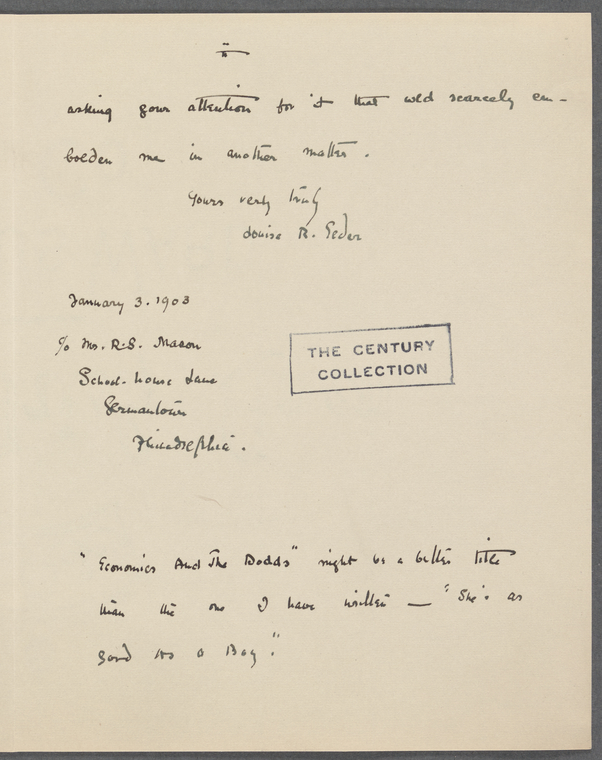 ii
asking your attention for it that wld scarcely em-
bolden me in another matter.
Yours very truly
Louise R.
January 3. 1903
c/o Mrs. R. S. Mason
School-house Lane
Germantown
Philadelphia.
THE CENTURY
COLLECTION
"Economics And The Dodds" might be a better title
than the one I have written — "She's as
good as a Boy."